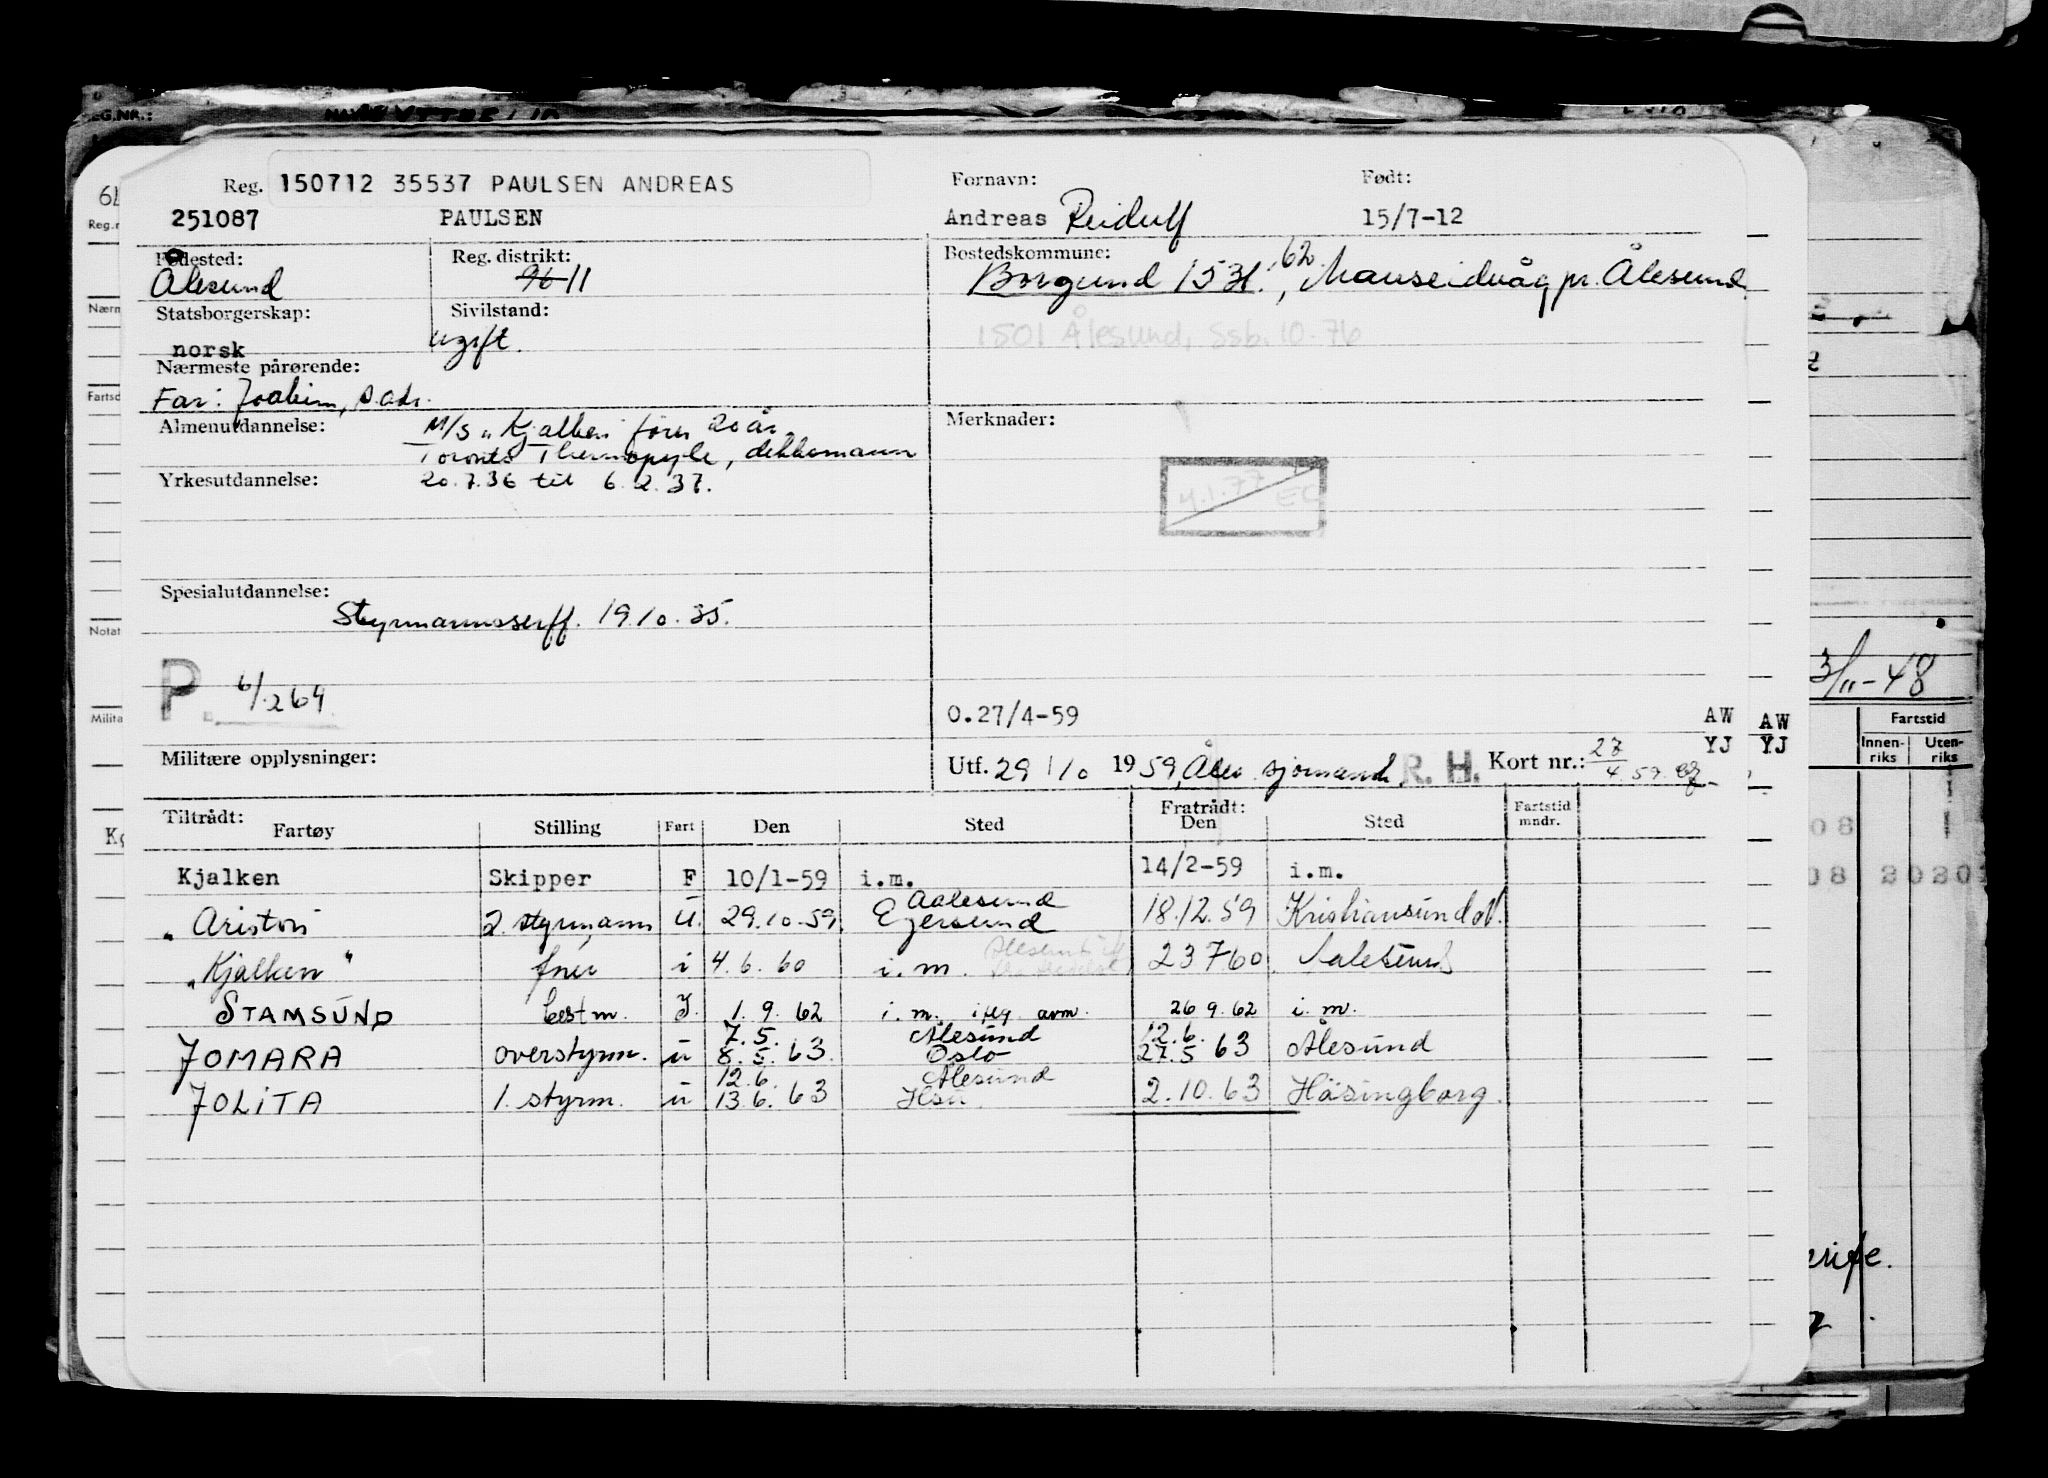 Reg. 150712 35537 PAULSEN ANDREAS
Fornavn: Født:
251087 PAULSEN Andreas Reidulf 15/7-12
Fødested: Reg. distrikt: Bostedskommune:
Ålesund 96 11 Borgund 1531. 62, Mauseidvåg pr. Ålesund
Statsborgerskap: Sivilstand:
norsk ugift.
1501 Ålesund, Ssb. 10-76
Nærmeste pårørende:
Far: Joakim, s. adr.
Almenutdannelse: M/S "Kjalken" fører 20 år
Merknader:
Toronto Thermopyle, dekksmann
Yrkesutdannelse: 20.7.36 til 6.2.37.
4.1.77 EG
Spesialutdannelse:
Styrmannssertf. 19 10. 35.
P. 6/2 64
O.27/4-59 AW AW
YJ YJ
Militære opplysninger: Utf. 29 1/0 1959, Åles. sjømannsk. R. H. Kort nr.: 27/4.59.
Tiltrådt: Fratrådt:
Fartøy Stilling Fart Den Sted Den Sted Fartstid mndr.
Kjalken Skipper F 10/1-59 i.m. 14/2-59 i.m.
Aalesund
"Ariston 2. styrmann u. 29.10.59. Egersund 18.12.59 Kristiansund N.
"Kjalken" fører i 4.6.60 i.m. 23 7 60. Aalesund
STAMSUND bestm. I. 1.9.62 i.m. iflg. avm. 26 9.62 i.m.
7.5. Ålesund 12.6.
JOMARA overstyrm. u 8.5.63. Oslo 27.5 63 Ålesund
12.6. Ålesund
JOLITA 1. styrm. u 13.6.63 2.10.63 Hälsingborg.
REG.NR.:
Reg.n
Nærm
Fartsd
Notat
Milita
3/11-48
Fartstid
Innen-riks Uten-riks
08
08 20201